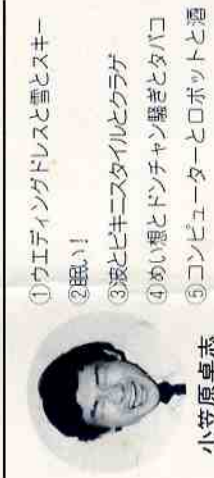 ①ウエディングドレスと雪とスキー
②眠い！
③波とビキニスタイルとクラゲ
④めい想とドンチャン騒ぎとタバコ
⑤コンピューターとロボットと酒
小笠原卓志